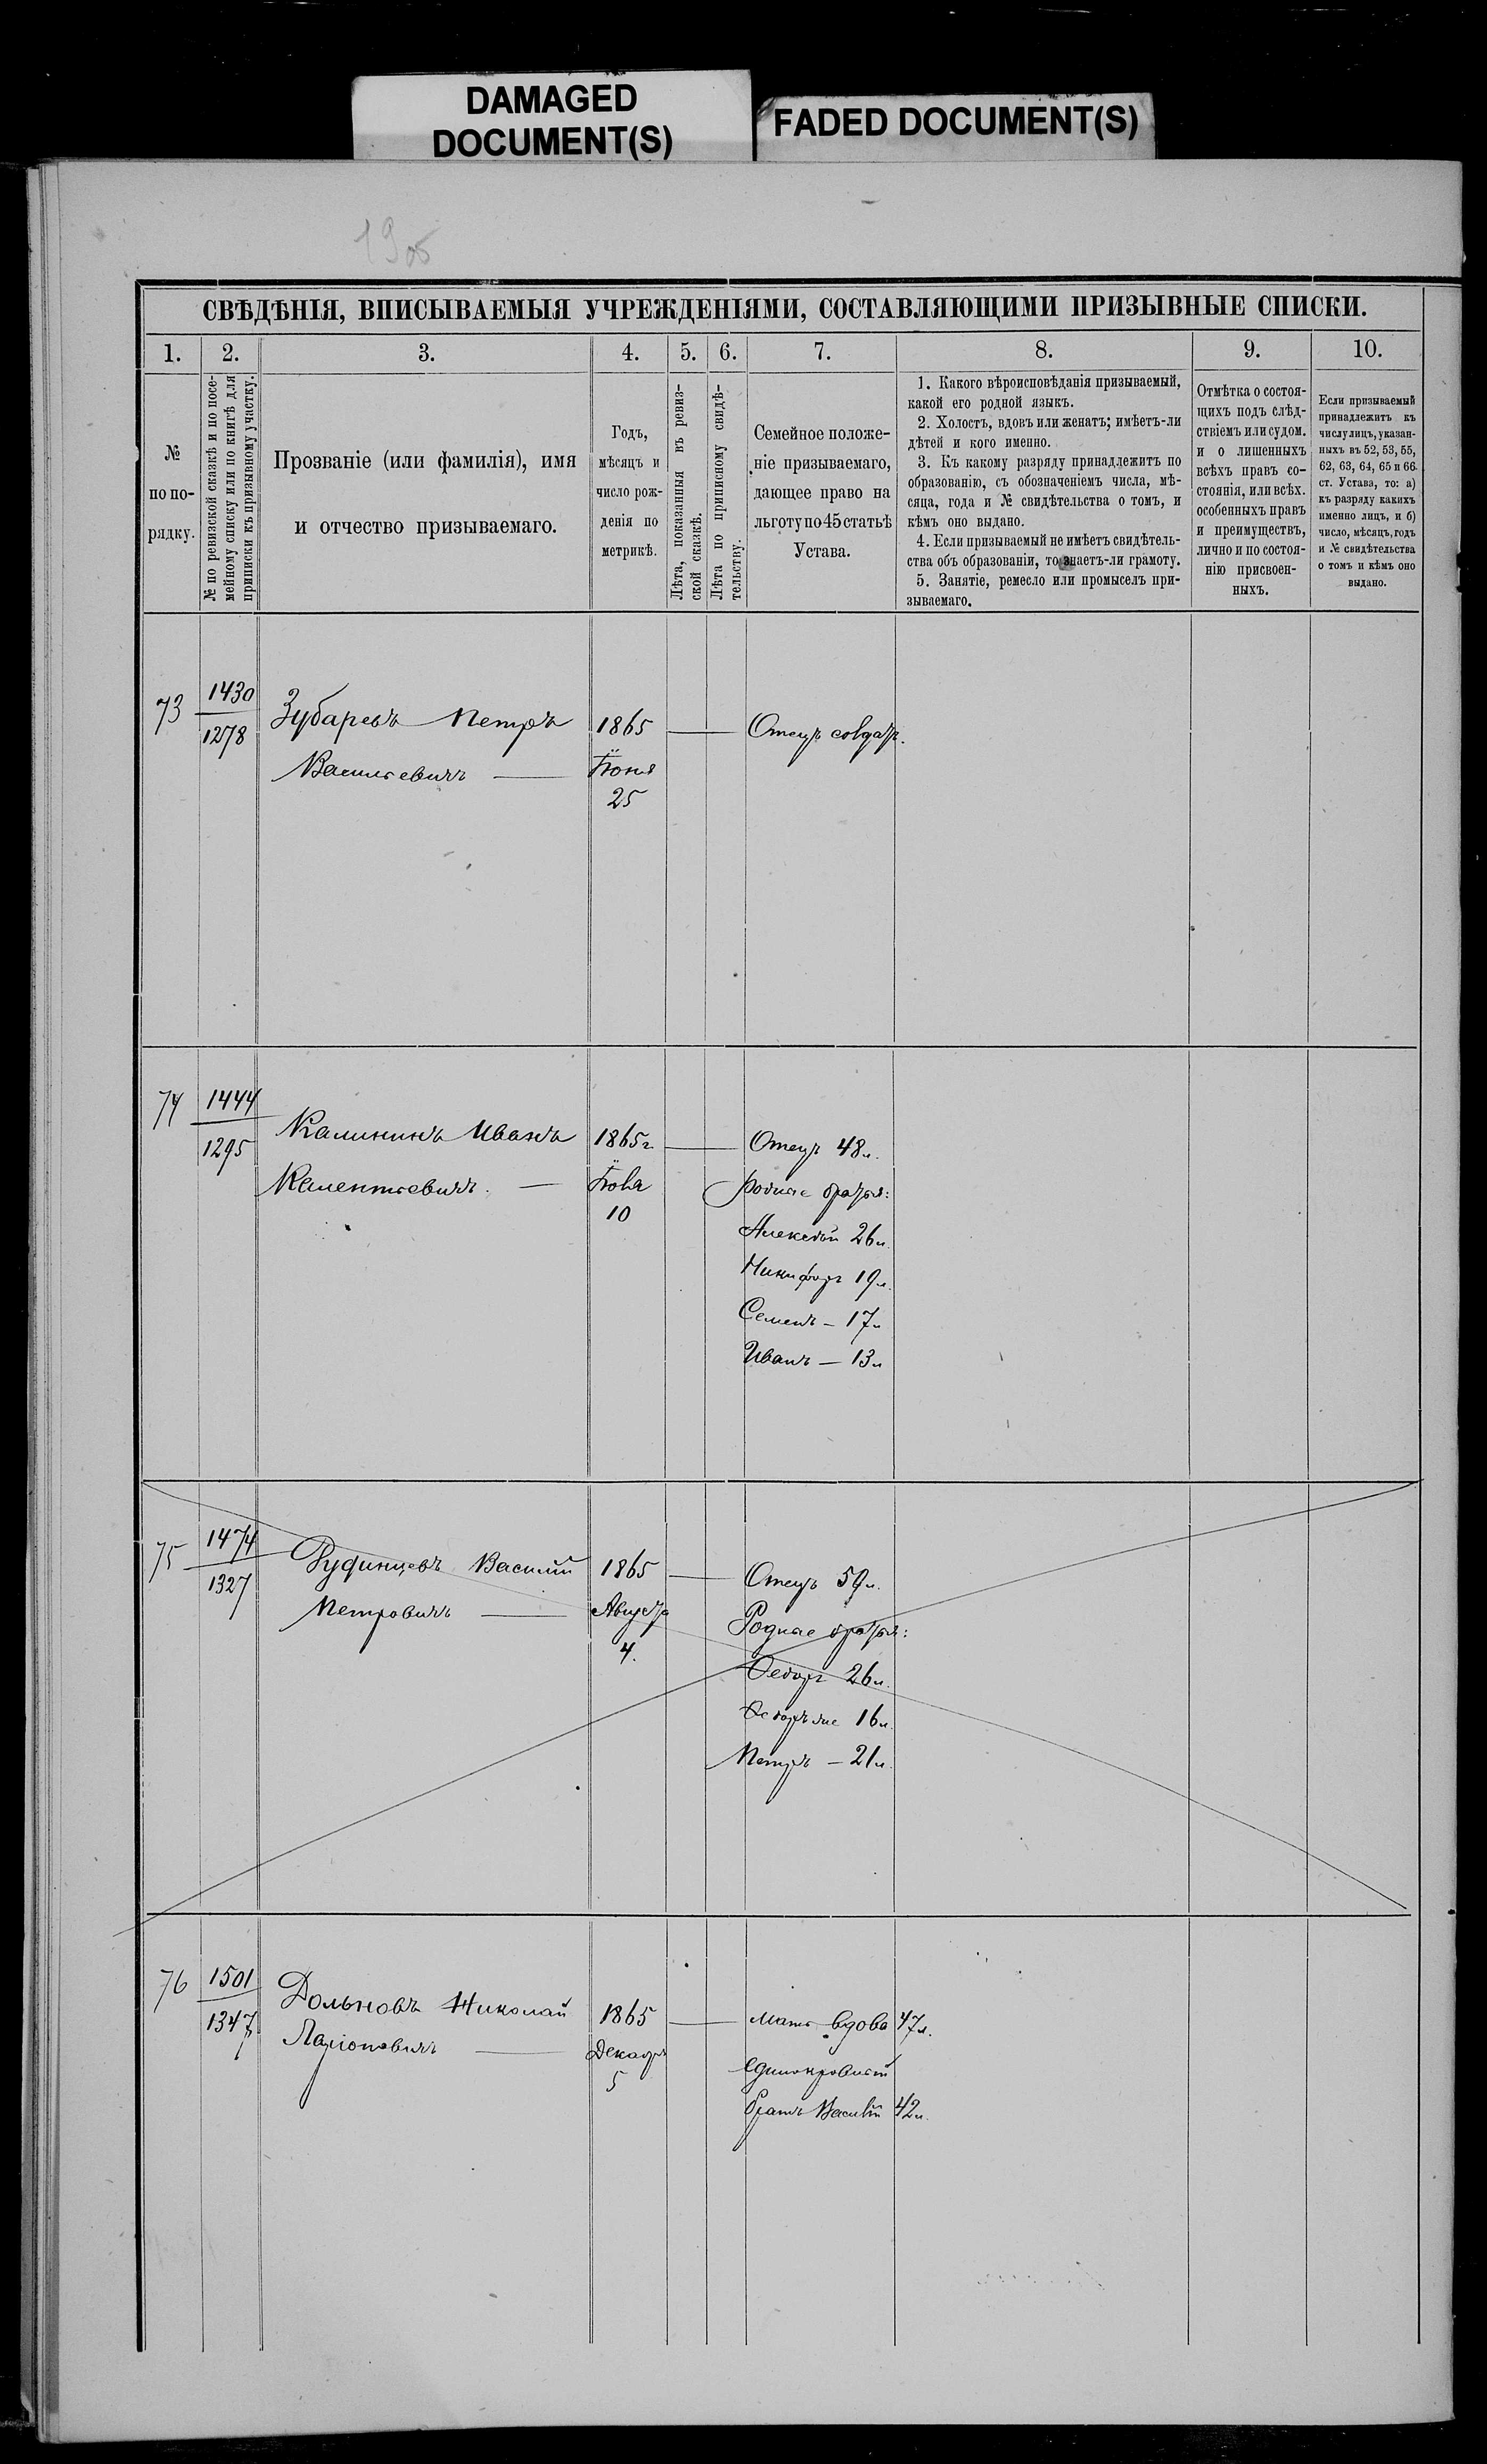 DAMAGED
DOCUMENT(S)
FADED DOCUMENT(S)
СВѢДѢНІЯ, ВПИСЫВАЕМЫЯ УЧРЕЖДЕНІЯМИ, СОСТАВЛЯЮЩИМИ ПРИЗЫВНЫЕ СПИСКИ.
1. 2. 3. 4. 5. 6. 7. 8. 9. 10.
№
по по-
рядку.
№ по ревизской сказкѣ и по посе-
мейному списку или по книгѣ для
приписки къ призывному участку.
Прозваніе (или фамилія), имя
и отчество призываемаго.
Годъ,
мѣсяцъ и
число рож-
денія по
метрикѣ.
Лѣта, показанныя въ ревиз-
ской сказкѣ.
Лѣта по приписному свидѣ-
тельству.
Семейное положе-
ніе призываемаго,
дающее право на
льготу по 45 статьѣ
Устава.
1. Какого вѣроисповѣданія призываемый,
какой его родной языкъ.
2. Холостъ, вдовъ или женатъ; имѣетъ-ли
дѣтей и кого именно.
3. Къ какому разряду принадлежитъ по
образованію, съ обозначеніемъ числа, мѣ-
сяца, года и № свидѣтельства о томъ, и
кѣмъ оно выдано.
4. Если призываемый не имѣетъ свидѣтель-
ства объ образованіи, то знаетъ-ли грамоту.
5. Занятіе, ремесло или промыселъ при-
зываемаго.
Отмѣтка о состоя-
щихъ подъ слѣд-
ствіемъ или судом.
и о лишенныхъ
всѣхъ правъ со-
стоянія, или всѣх.
особенныхъ правъ
и преимуществъ,
лично и по состоя-
нію присвоен-
ныхъ.
Если призываемый
принадлежитъ къ
числу лицъ, указан-
ныхъ въ 52, 53, 55,
62, 63, 64, 65 и 66.
ст. Устава, то: а)
къ разряду какихъ
именно лицъ, и б)
число, мѣсяцъ, годъ
и № свидѣтельства
о томъ и кѣмъ оно
выдано.
73
1430
1278
Зубаревъ Петръ
Васильевичъ
1865
Іюня
25
Отецъ солдатъ.
74
1444
1295
Калининъ Иванъ
Калентьевичъ.
1865 г.
Іюля
10
Отецъ 48 л.
родные братья:
Алексѣй 26 л.
Никифоръ 19 л.
Семенъ – 17 л
Иванъ – 13 л
75
1474
1327
Рудинцевъ Василій
Петровичъ
1865
Августа
4.
Отецъ 59 л.
Родные братья:
Ѳедоръ 26 л.
Ѳедоръ же 16 л.
Петръ – 21 л.
76
1501
1347
Дольновъ Николай
Ларіоновичъ
1865
Декабря
5
Мать вдова 47 л.
единокровный
братъ Василій 42 л.